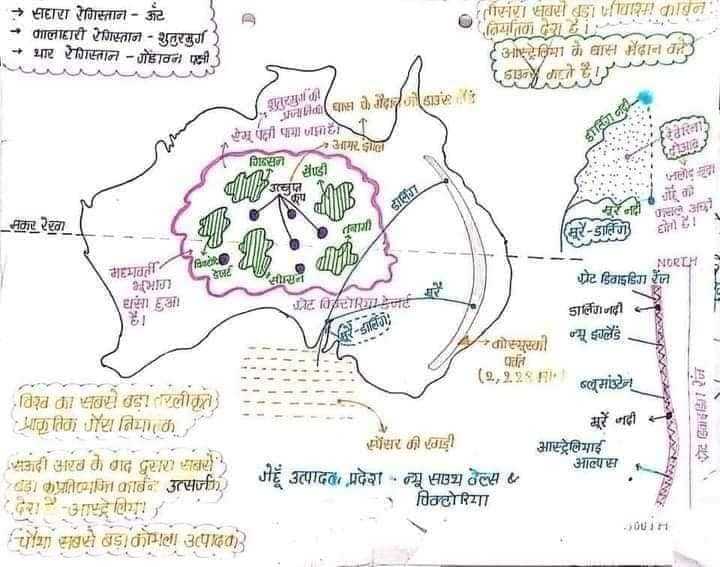 → सहारा रेगिस्तान - ऊँट
→ कालाहारी रेगिस्तान - शुतुरमुर्ग
→ थार रेगिस्तान - गोंडावन पक्षी
तीसरा सबसे बड़ा जीवाश्म कार्बन
निर्यातक देश है।
आस्ट्रेलिया के घास मैदान को
डाउन्स कहते है।
शुतुरमुर्ग की
प्रजाति का
ऐमू पक्षी पाया जाता है।
घास के मैदान को डाउंस
आयर झील
गिब्सन
सैण्डी
उत्स्रुत
कूप
तनामी
विक्टोरिया
डेजर्ट
सीम्सन
ग्रेट विक्टोरिया डेजर्ट
मकर रेखा
मध्यवर्ती
भूभाग
धंसा हुआ
है।
डार्लिंग
मूर्रे
मूर्रे-डार्लिंग
डार्लिंग नदी
रिवेरिना
दोआब
जलोढ़ मृदा
गेंहू की
फसल अच्छी
होती है।
मूर्रे नदी
मूर्रे-डार्लिंग
NORTH
ग्रेट डिवाइडिंग रेंज
डार्लिंग नदी
न्यू इंग्लैंड
ब्लू माउंटेन
मूर्रे नदी
आस्ट्रेलियाई
आल्पस
ग्रेट डिवाइडिंग रेंज
कोस्यूस्को
पर्वत
(2,228 मी॰)
स्पेंसर की खाड़ी
गेहूँ उत्पादक प्रदेश - न्यू साउथ वेल्स &
विक्टोरिया
विश्व का सबसे बड़ा तरलीकृत
प्राकृतिक गैस निर्यातक
सऊदी अरब के बाद दूसरा सबसे
बड़ा प्रतिव्यक्ति कार्बन उत्सर्जक
देश है -आस्ट्रेलिया
चौथा सबसे बड़ा कोयला उत्पादक